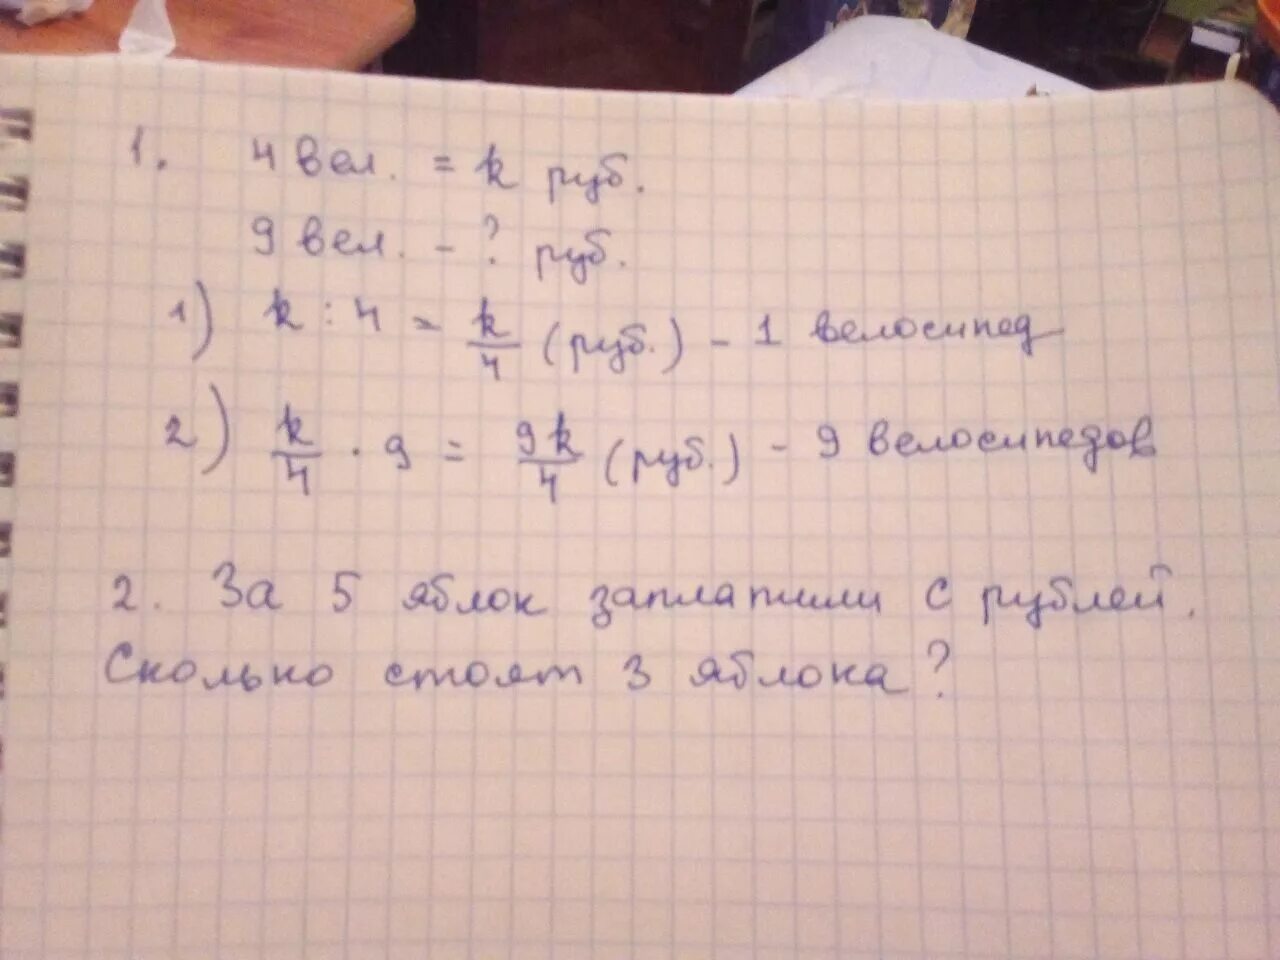 1. 4 вел. = k руб.
9 вел. - ? руб.
1) k : 4 = k/4 (руб.) - 1 велосипед
2) k/4 · 9 = 9k/4 (руб.) - 9 велосипедов
2. За 5 яблок заплатили с рублей.
Сколько стоят 3 яблока?